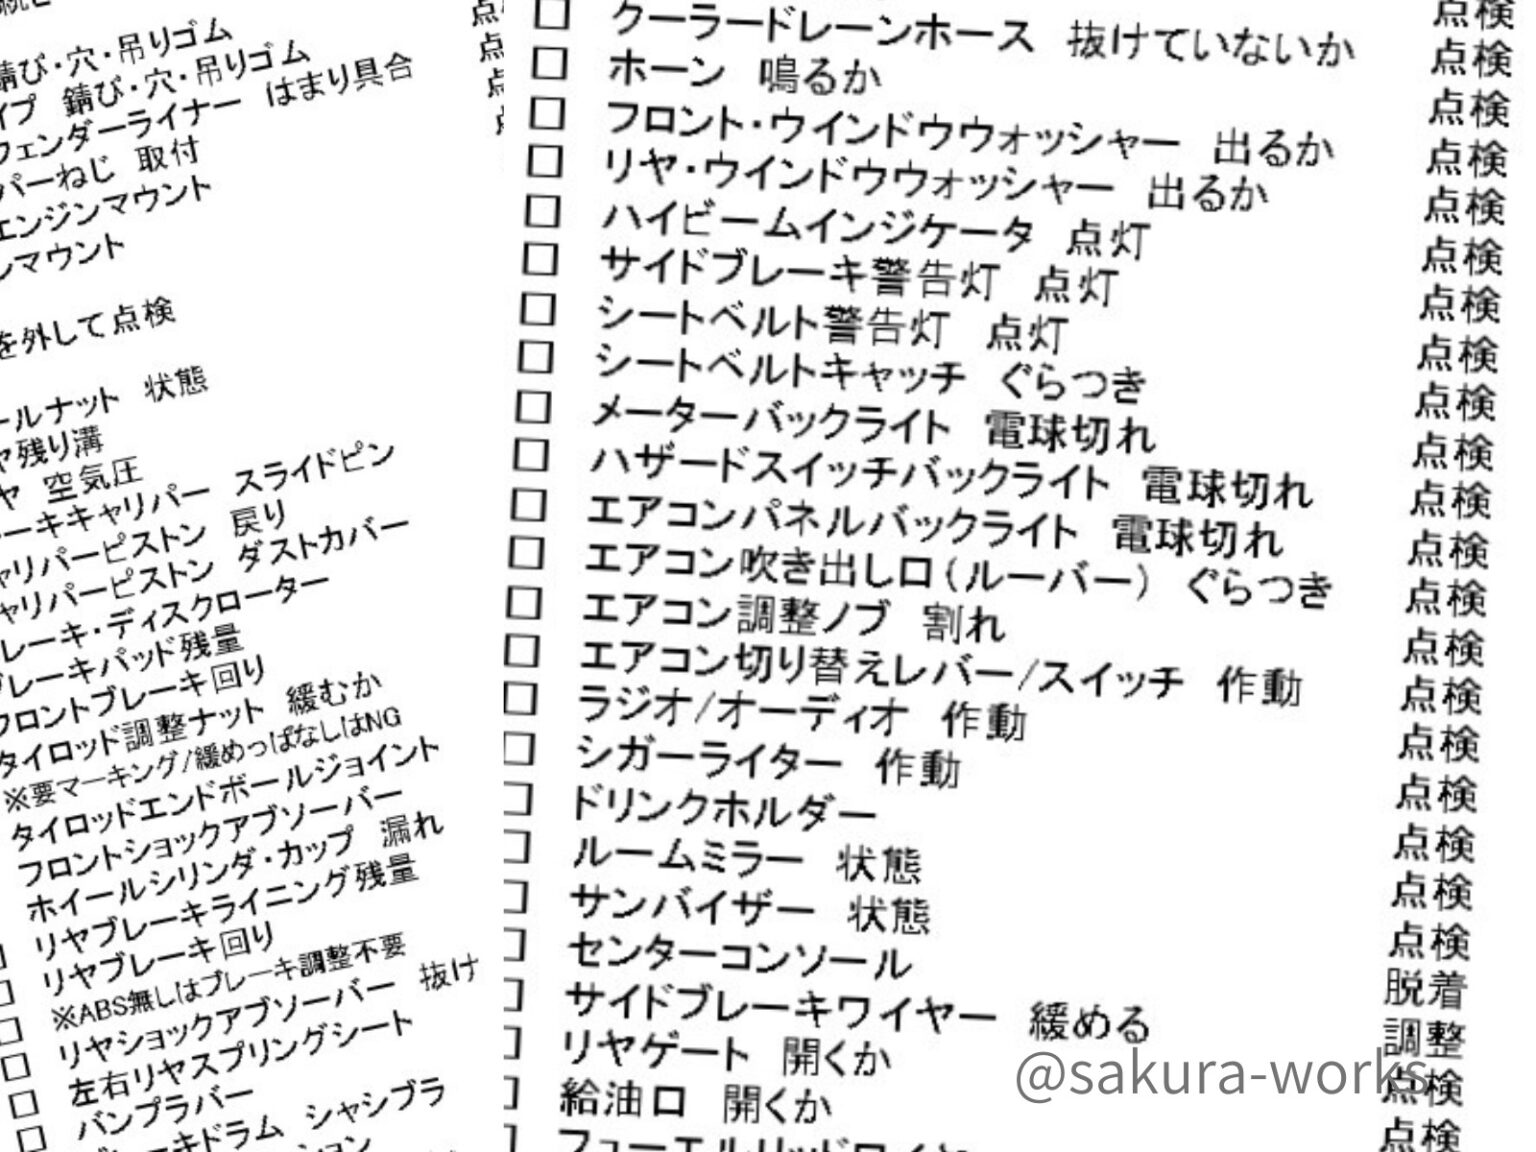 錆び・穴・吊りゴム
イプ 錆び・穴・吊りゴム
フェンダーライナー はまり具合
パーねじ 取付
エンジンマウント
ンマウント
を外して点検
ールナット 状態
ヤ残り溝
ヤ 空気圧
ーキキャリパー スライドピン
ャリパーピストン 戻り
ャリパーピストン ダストカバー
レーキ・ディスクローター
ブレーキパッド残量
フロントブレーキ回り
タイロッド調整ナット 緩むか
※要マーキング/緩めっぱなしはNG
タイロッドエンドボールジョイント
フロントショックアブソーバー
ホイールシリンダ・カップ 漏れ
リヤブレーキライニング残量
リヤブレーキ回り
※ABS無しはブレーキ調整不要
リヤショックアブソーバー 抜け
左右リヤスプリングシート
バンプラバー
ーキドラム シャシブラ
ション
点
点
点
□ クーラードレーンホース 抜けていないか 点検
□ ホーン 鳴るか 点検
□ フロント・ウインドウウォッシャー 出るか 点検
□ リヤ・ウインドウウォッシャー 出るか 点検
□ ハイビームインジケータ 点灯 点検
□ サイドブレーキ警告灯 点灯 点検
□ シートベルト警告灯 点灯 点検
□ シートベルトキャッチ ぐらつき 点検
□ メーターバックライト 電球切れ 点検
□ ハザードスイッチバックライト 電球切れ 点検
□ エアコンパネルバックライト 電球切れ 点検
□ エアコン吹き出し口(ルーバー) ぐらつき 点検
□ エアコン調整ノブ 割れ 点検
□ エアコン切り替えレバー/スイッチ 作動 点検
□ ラジオ/オーディオ 作動 点検
□ シガーライター 作動 点検
□ ドリンクホルダー 点検
□ ルームミラー 状態 点検
□ サンバイザー 状態 点検
□ センターコンソール 脱着
□ サイドブレーキワイヤー 緩める 調整
□ リヤゲート 開くか 点検
□ 給油口 開くか 点検
フューエルリッドワイヤ
@sakura-works